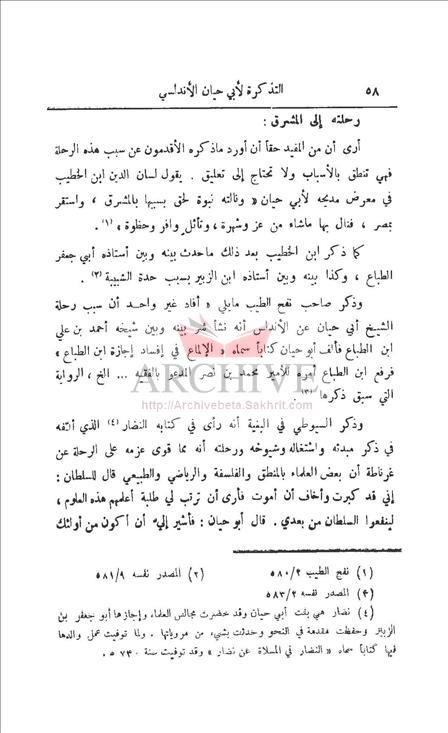 ٥٨ التذكرة لأبي حيان الأندلسي
رحلته إلى المشرق :
أرى أن من المفيد حقاً أن أورد ماذكره الأقدمون عن سبب هذه الرحلة
فهي تنطق بالأسباب ولا تحتاج إلى تعليق . يقول لسان الدين ابن الخطيب
في معرض مديحه لأبي حيان « ونالته نبوة لحق بسببها بالمشرق ، واستقر
بمصر ، فنال بها ماشاء من عز وشهرة ، وتأثل وافر وحظوة » (١) .
كما ذكر ابن الخطيب بعد ذلك ماحدث بينه وبين أستاذه أبي جعفر
الطباع ، وكذا بينه وبين أستاذه ابن الزبير بسبب حدة الشبيبة (٢) .
وذكر صاحب نفح الطيب مايلي « أفاد غير واحد أن سبب رحلة
الشيخ أبي حيان عن الأندلس أنه نشأ شر بينه وبين شيخه أحمد بن علي
ابن الطباع فألف أبو حيان كتاباً سماه « الإلماع في إفساد إجازة ابن الطباع »
فرفع ابن الطباع أمره للأمير محمد بن نصر المدعو بالفقيه ... الخ ، الرواية
التي سبق ذكرها (٣) .
ARCHIVE
http://Archivebeta.Sakhrit.com
وذكر السيوطي في البغية أنه رأى في كتابه النضار (٤) الذي ألفه
في ذكر مبدئه واشتغاله وشيوخه ورحلته أنه مما قوى عزمه على الرحلة عن
غرناطة أن بعض العلماء بالمنطق والفلسفة والرياضي والطبيعي قال للسلطان :
إني قد كبرت وأخاف أن أموت فأرى أن ترتب لي طلبة أعلمهم هذه العلوم ،
لينفعوا السلطان من بعدي . قال أبو حيان : فأشير إلي أن أكون من أولئك
(١) نفح الطيب ٥٨٠/٢ (٢) المصدر نفسه ٥٨١/٩
(٣) المصدر نفسه ٥٨٣/٢
(٤) نضار هي بنت أبي حيان وقد حضرت مجالس العلماء وإجازها أبو جعفر بن
الزبير وحفظت مقدمة في النحو وحدثت بشيء من مروياتها . ولما توفيت عمل والدها
فيها كتاباً سماه « النضار في المسلاة عن نضار » وقد توفيت سنة ٧٣٠ ه .